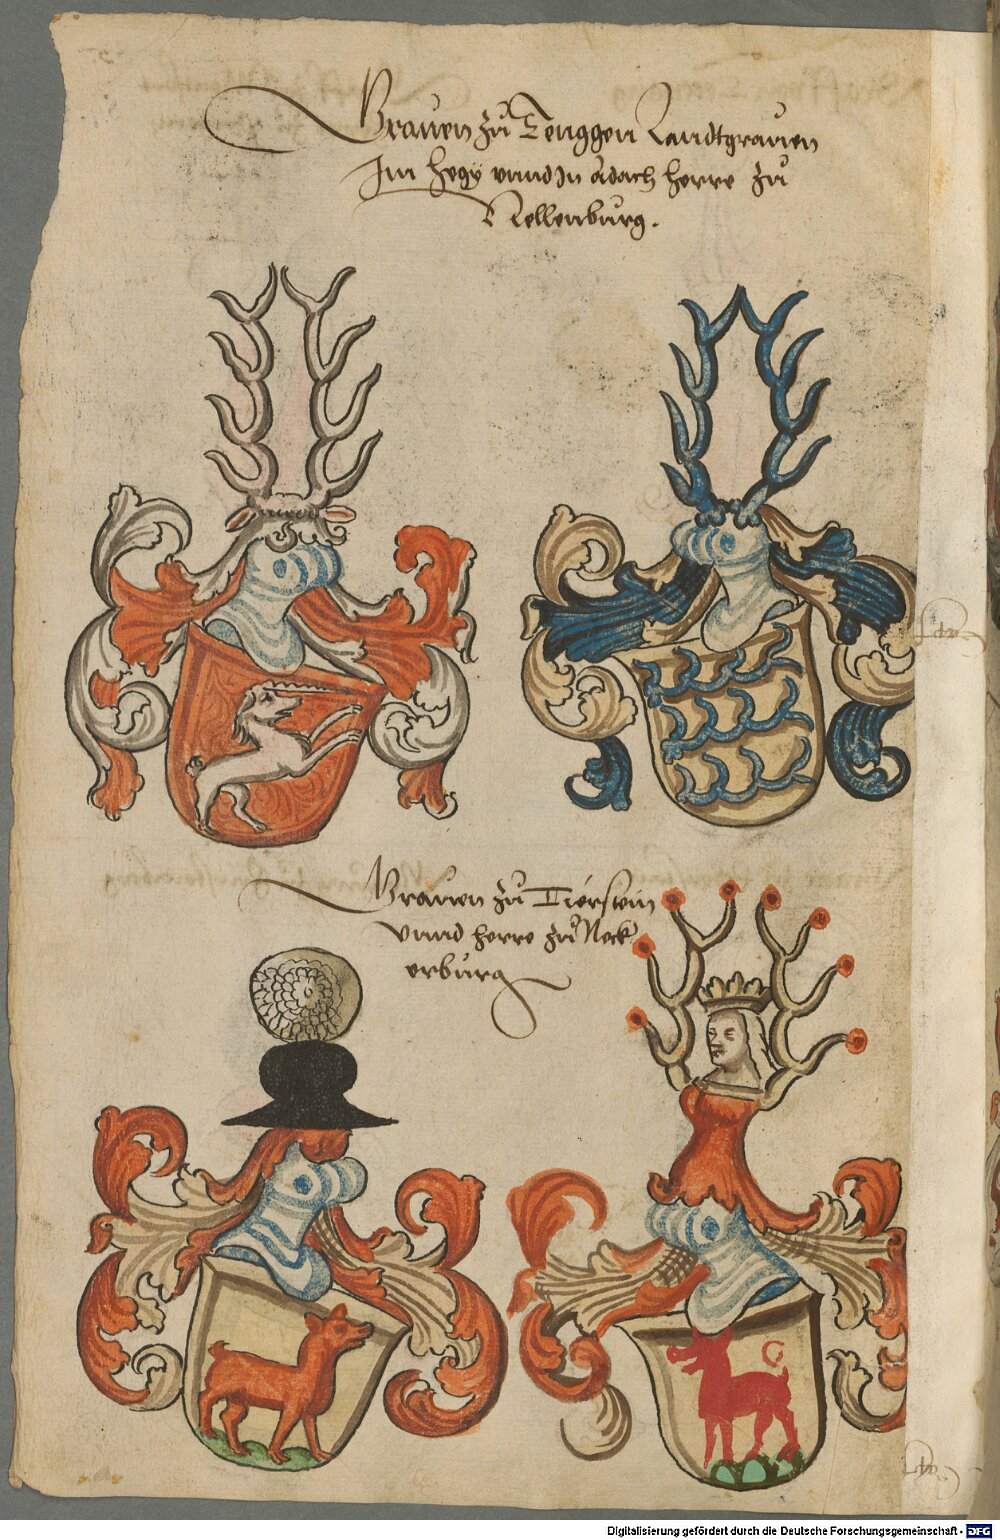 Grauen zů Tenggen Landtgrauen
Im hegÿ vnnd In Madach herre zů
Nellenburg.
Grauen zů Tierstein
vnnd herre zů Neck
erburg
Digitalisierung gefördert durch die Deutsche Forschungsgemeinschaft - DFG